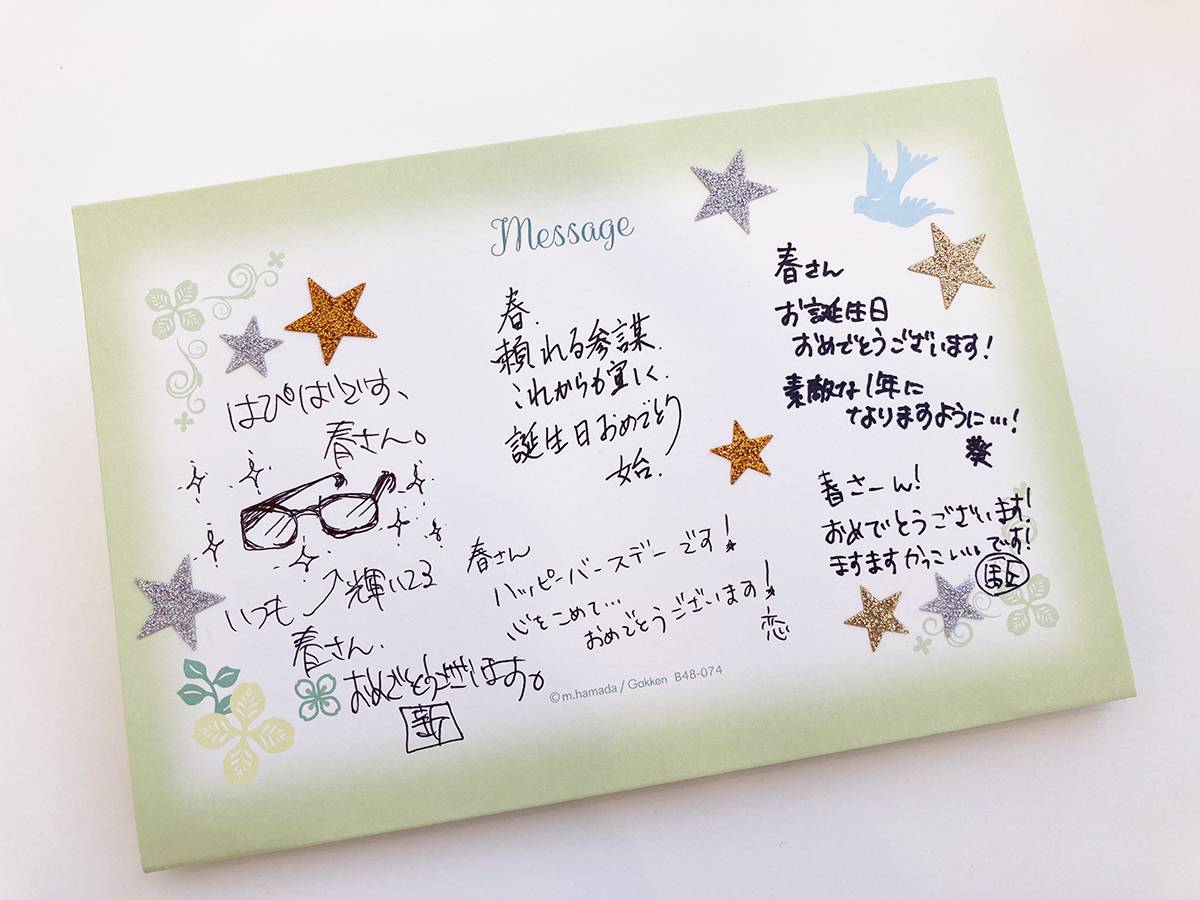 Message
はぴばです、
春さん。
いつも輝いてる
春さん。
おめでとうございます。
新
春.
頼れる参謀.
これからも宜しく.
誕生日おめでとう
始.
春さん
ハッピーバースデーです!
心をこめて…
おめでとうございます!
恋
春さん
お誕生日
おめでとうございます!
素敵な1年に
なりますように…!
葵
春さーん!
おめでとうございます!
ますますかっこいいです!
©m.hamada / Gakken B48-074